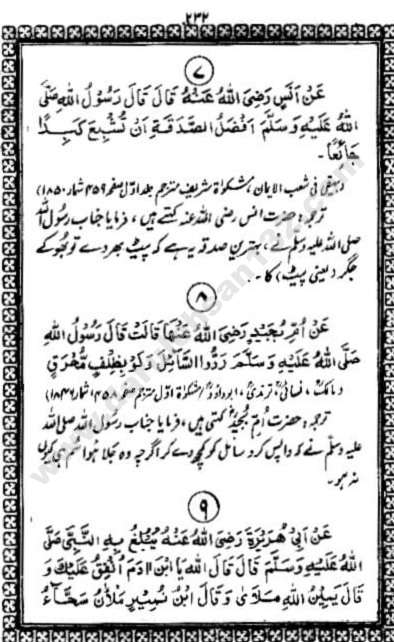 ۲۳۲
۷
عَنْ اَنَسٍ رَضِیَ اللهُ عَنْهُ قَالَ قَالَ رَسُوْلُ اللهِ صَلَّی
اللهُ عَلَیْهِ وَسَلَّمَ اَفْضَلُ الصَّدَقَةِ اَنْ تُشْبِعَ کَبِدًا
جَائِعًا۔
(بیہقی فی شعب الایمان، مشکوٰۃ شریف مترجم جلد اوّل صفحہ ۴۵۹ شمار ۱۸۵۰)
ترجمہ: حضرت انس رضی اللہ عنہ کہتے ہیں، فرمایا جناب رسول اللہ
صلی اللہ علیہ وسلم نے، بہترین صدقہ یہ ہے کہ پیٹ بھر دے تو بھوکے
جگر (یعنی پیٹ) کا۔
۸
عَنْ اُمِّ بُجَیْدٍ رَضِیَ اللهُ عَنْهَا قَالَتْ قَالَ رَسُوْلُ اللهِ
صَلَّی اللهُ عَلَیْهِ وَسَلَّمَ رَدُّوا السَّآئِلَ وَلَوْ بِظِلْفٍ مُّحْرَقٍ
(مالک، نسائی، ترمذی، ابوداؤد/مشکوٰۃ اوّل مترجم صفحہ ۴۵۸ شمار ۱۸۴۶)
ترجمہ: حضرت اُمّ بُجید کہتی ہیں، فرمایا جناب رسول اللہ صلی اللہ
علیہ وسلم نے کہ واپس کر و سائل کو کچھ دے کر اگرچہ وہ جلا ہوا سم ہی کیوں
نہ ہو۔
۹
عَنْ اَبِیْ هُرَیْرَةَ رَضِیَ اللهُ عَنْهُ یُبْلِغُ بِهِ النَّبِیَّ صَلَّی
اللهُ عَلَیْهِ وَسَلَّمَ قَالَ قَالَ اللهُ یَا ابْنَ اٰدَمَ اَنْفِقْ اُنْفِقْ عَلَیْكَ وَ
قَالَ یَمِیْنُ اللهِ مَلْاٰی وَقَالَ ابْنُ نُمَیْرٍ مَلْاٰنُ سَحَّآءُ